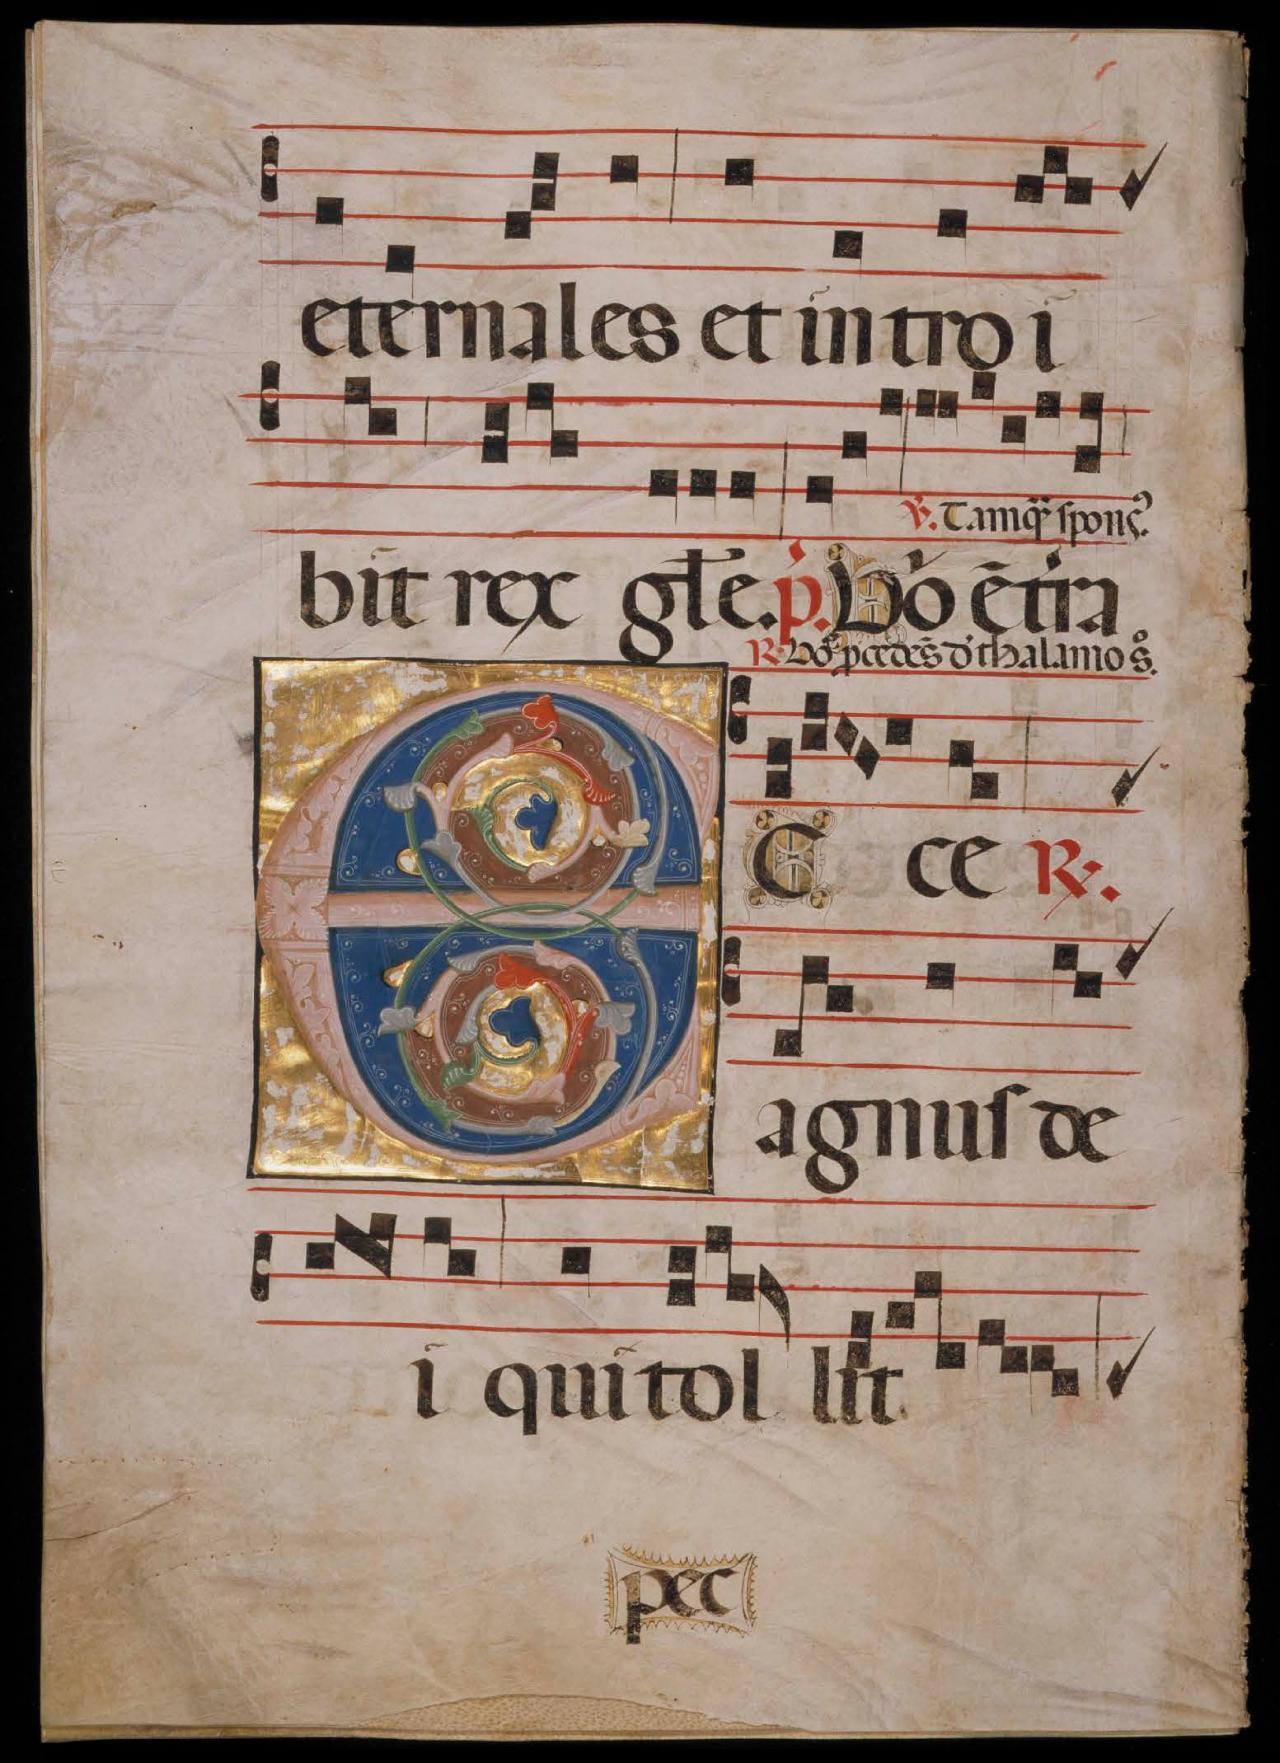 eternales et intro i
℣. Tamq̃ spons᾽.
bit rex gl̃e. p̄. Dño ẽt̃ra
℞. Dñs p̃cedẽs d᾽ thalamo s°.
E c ce ℞.
agnus de
i qui tol lit
pec